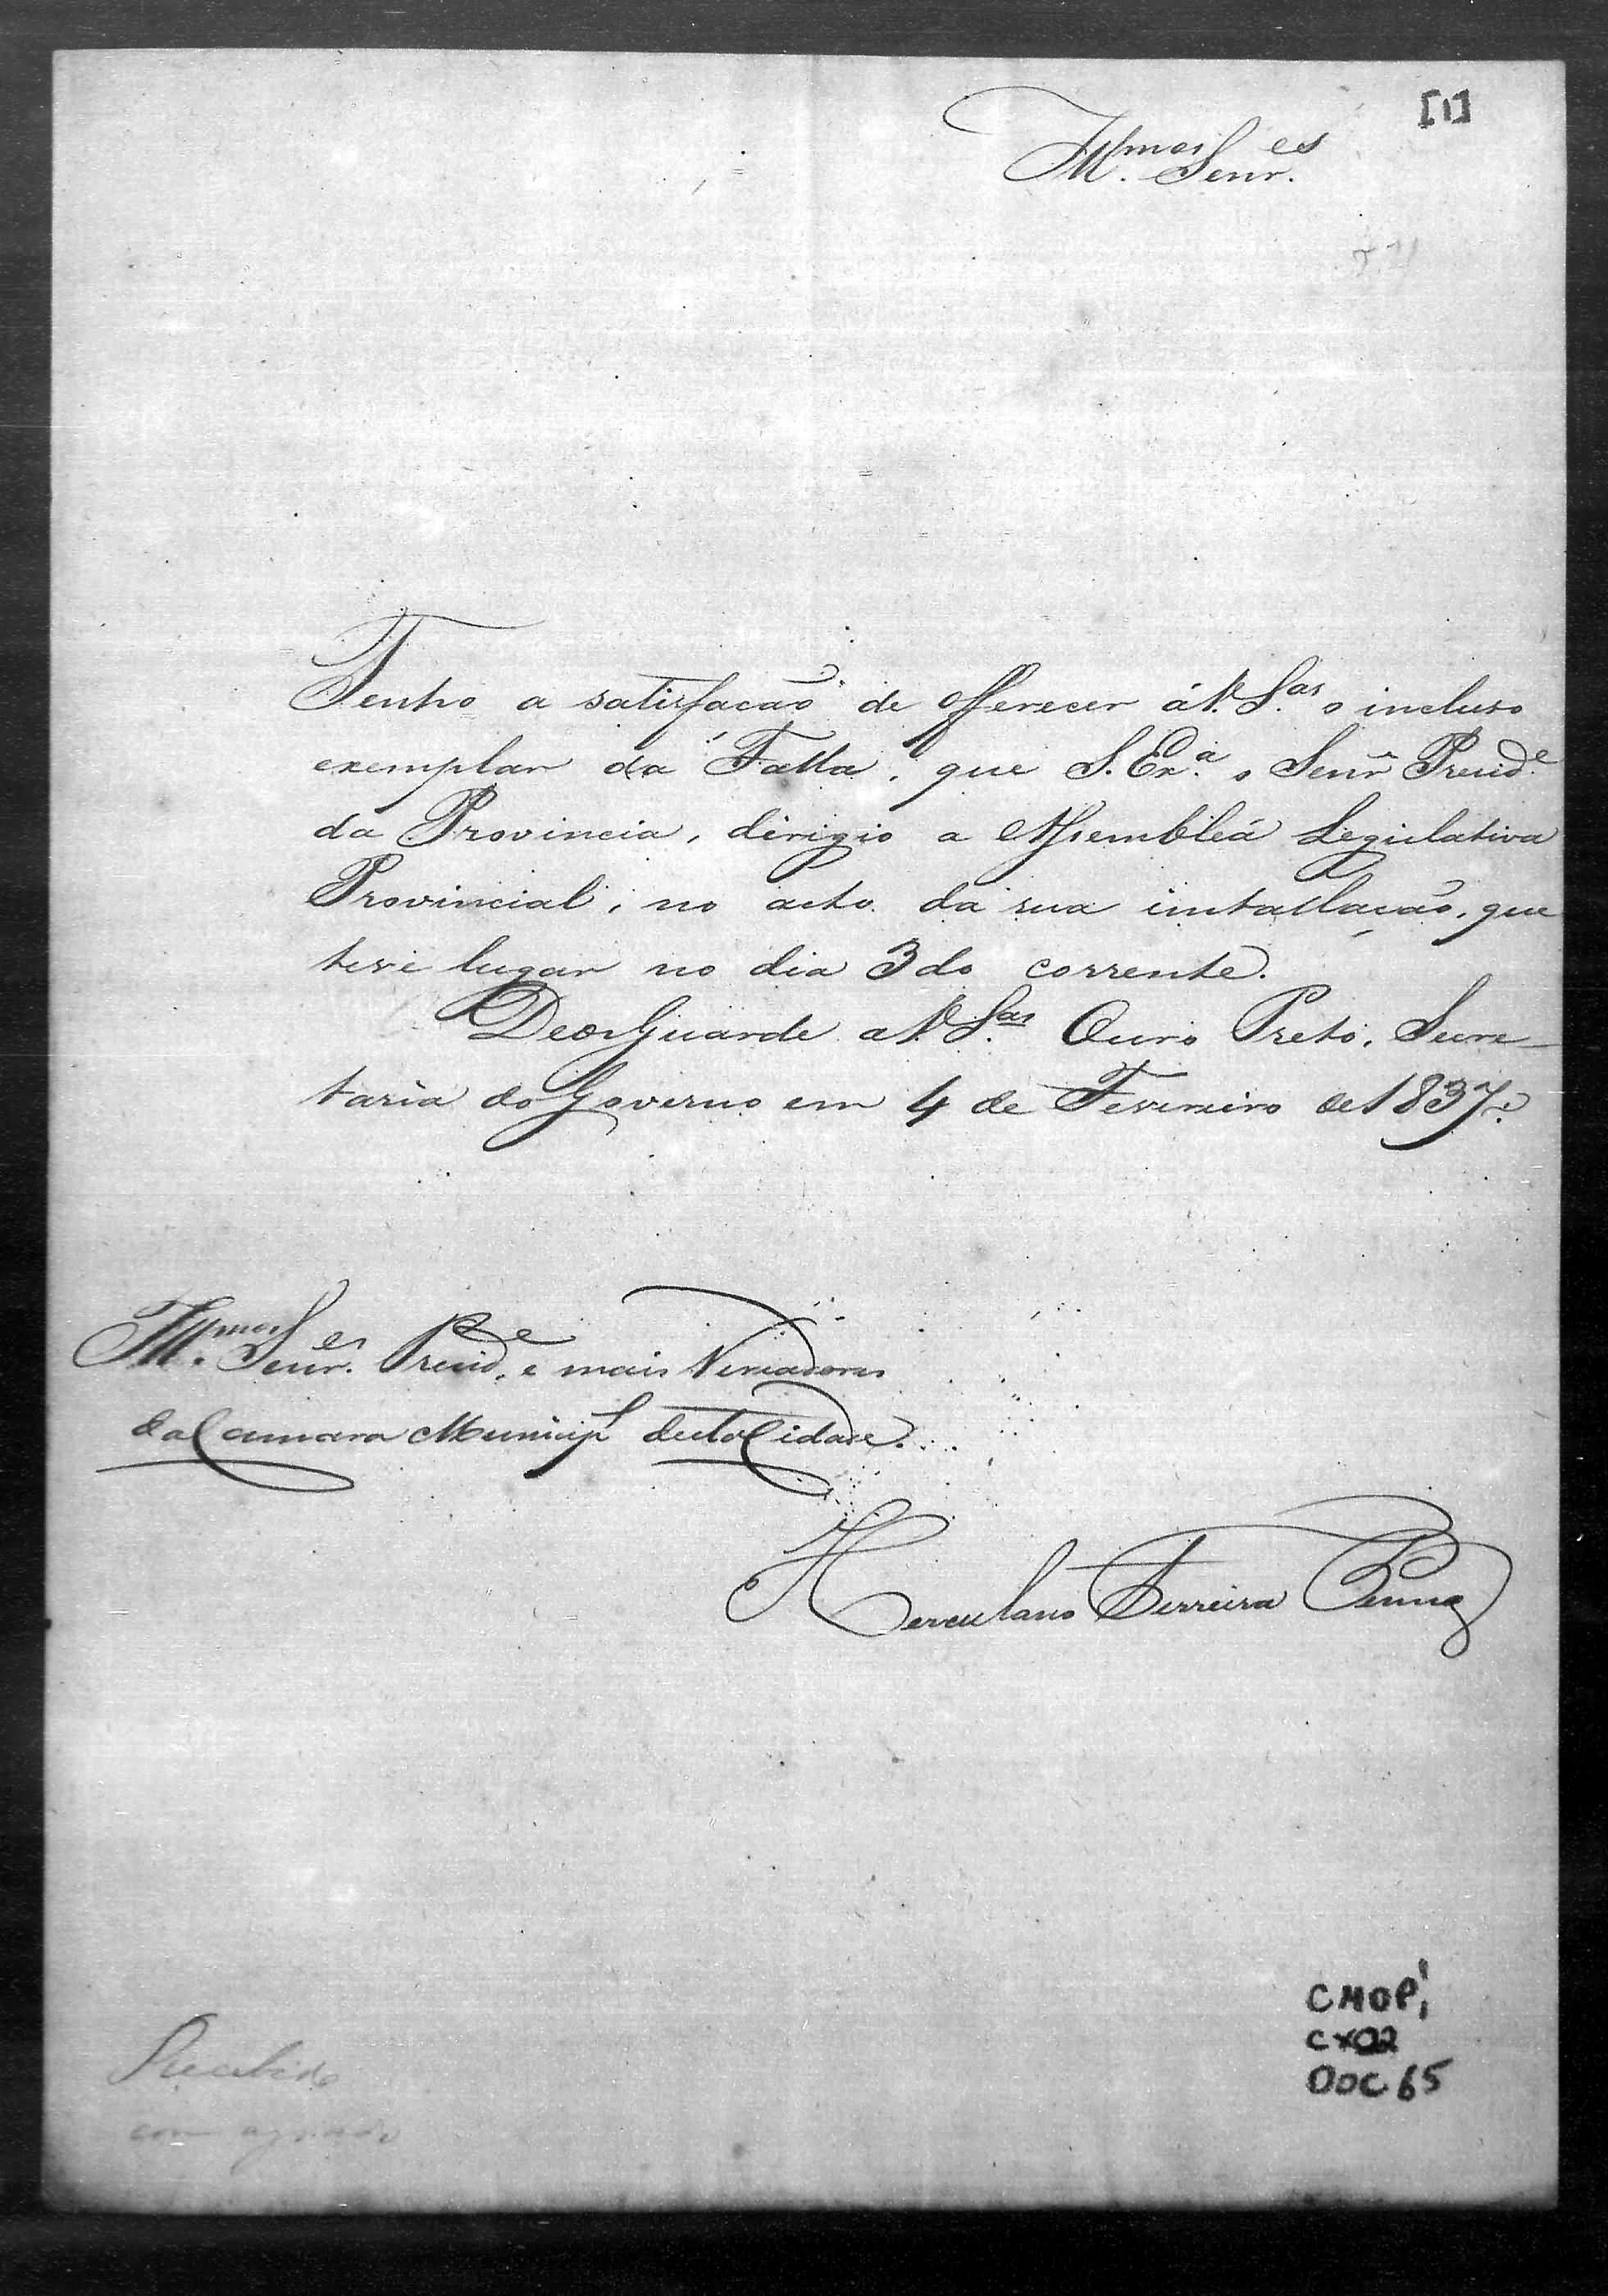 [1]
Ill.mos Senr.es
Tenho a satisfação de offerecer á V. S.as o incluso
exemplar da Falla, que S. Ex.a o Senr Presid.e
da Provincia, dirigio a Assembleá Legislativa
Provincial, no acto da sua installação, que
teve lugar no dia 3 do corrente.
Deos Guarde a V. S.as Ouro Preto, Secre-
taria do Governo em 4 de Fevereiro de 1837.
Ill.mos Senr.es Presid.e e mais Vereadores
da Camara Municipl desta Cidade.
Herculano Ferreira Penna
Recebido
com agrado
CMOP
CX02
DOC 65